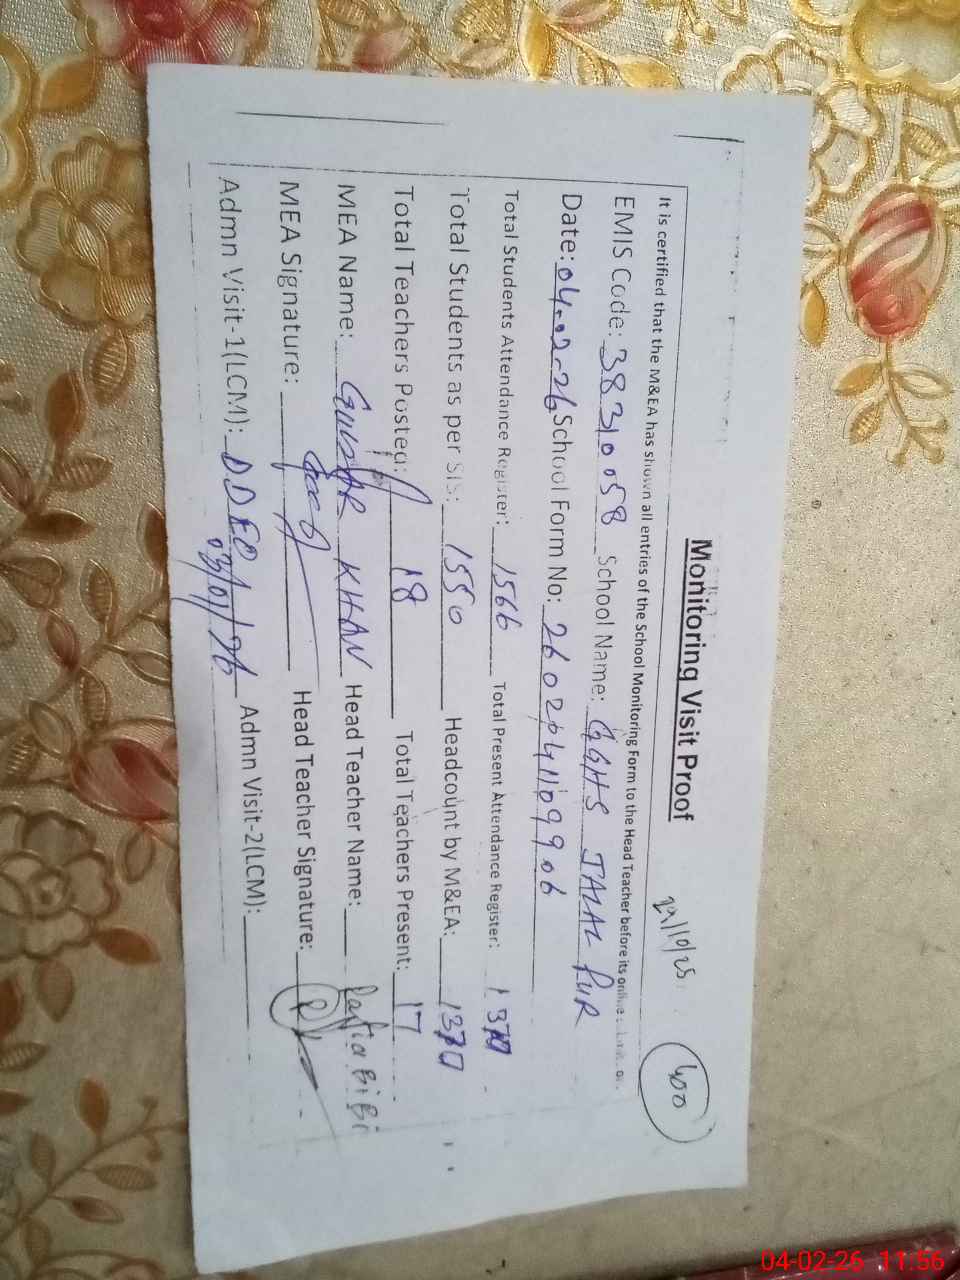 Monitoring Visit Proof
29/10/25
400
It is certified that the M&EA has shown all entries of the School Monitoring Form to the Head Teacher before its online
EMIS Code: 38310058 School Name: GGHS JALAL PUR
Date: 04-02-26 School Form No: 260204109906
Total Students Attendance Register: 1566 Total Present Attendance Register:
Total Students as per SIS: 1550 Headcount by M&EA:
Total Teachers Posted: 18 Total Teachers Present: 17
MEA Name: GULZAR KHAN Head Teacher Name: BiBi
MEA Signature: Head Teacher Signature:
Admn Visit-1(LCM): DDEO Admn Visit-2(LCM):
03/01/26
04-02-26 11:56